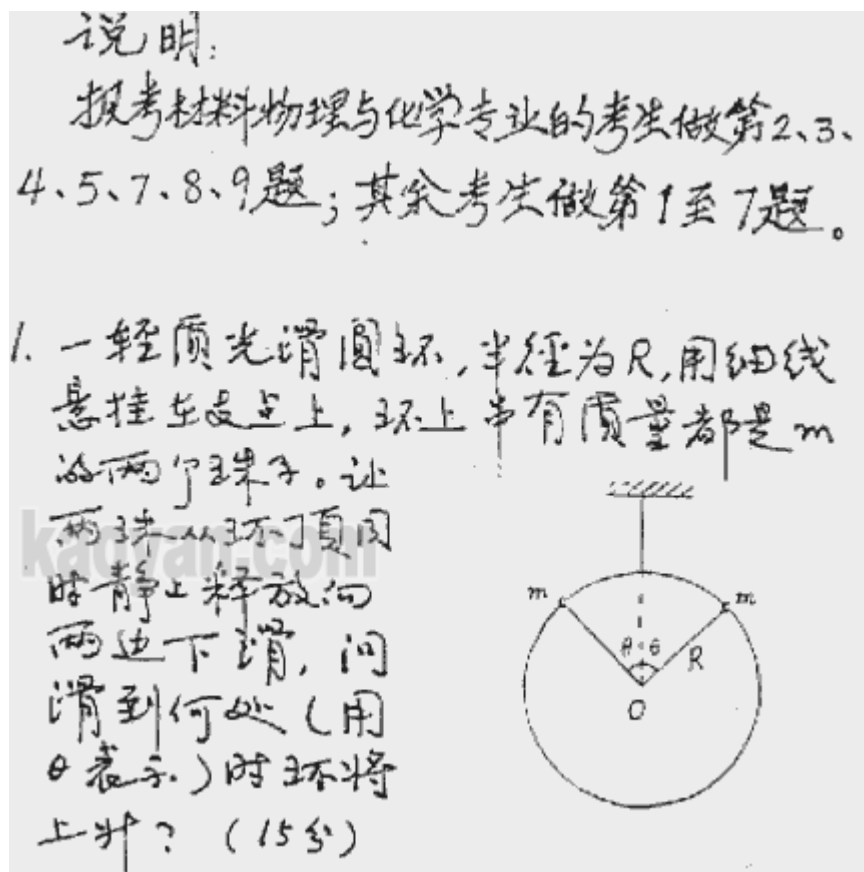 说明:
报考材料物理与化学专业的考生做第2、3、
4、5、7、8、9题；其余考生做第1至7题。
1. 一轻质光滑圆环,半径为R,用细线
悬挂在支点上,环上串有质量都是m
的两个珠子。让
两珠从环顶同
时静止释放向
两边下滑,问
滑到何处(用
θ表示)时环将
上升? (15分)
m
m
θ
θ
R
O
kaoyan.com